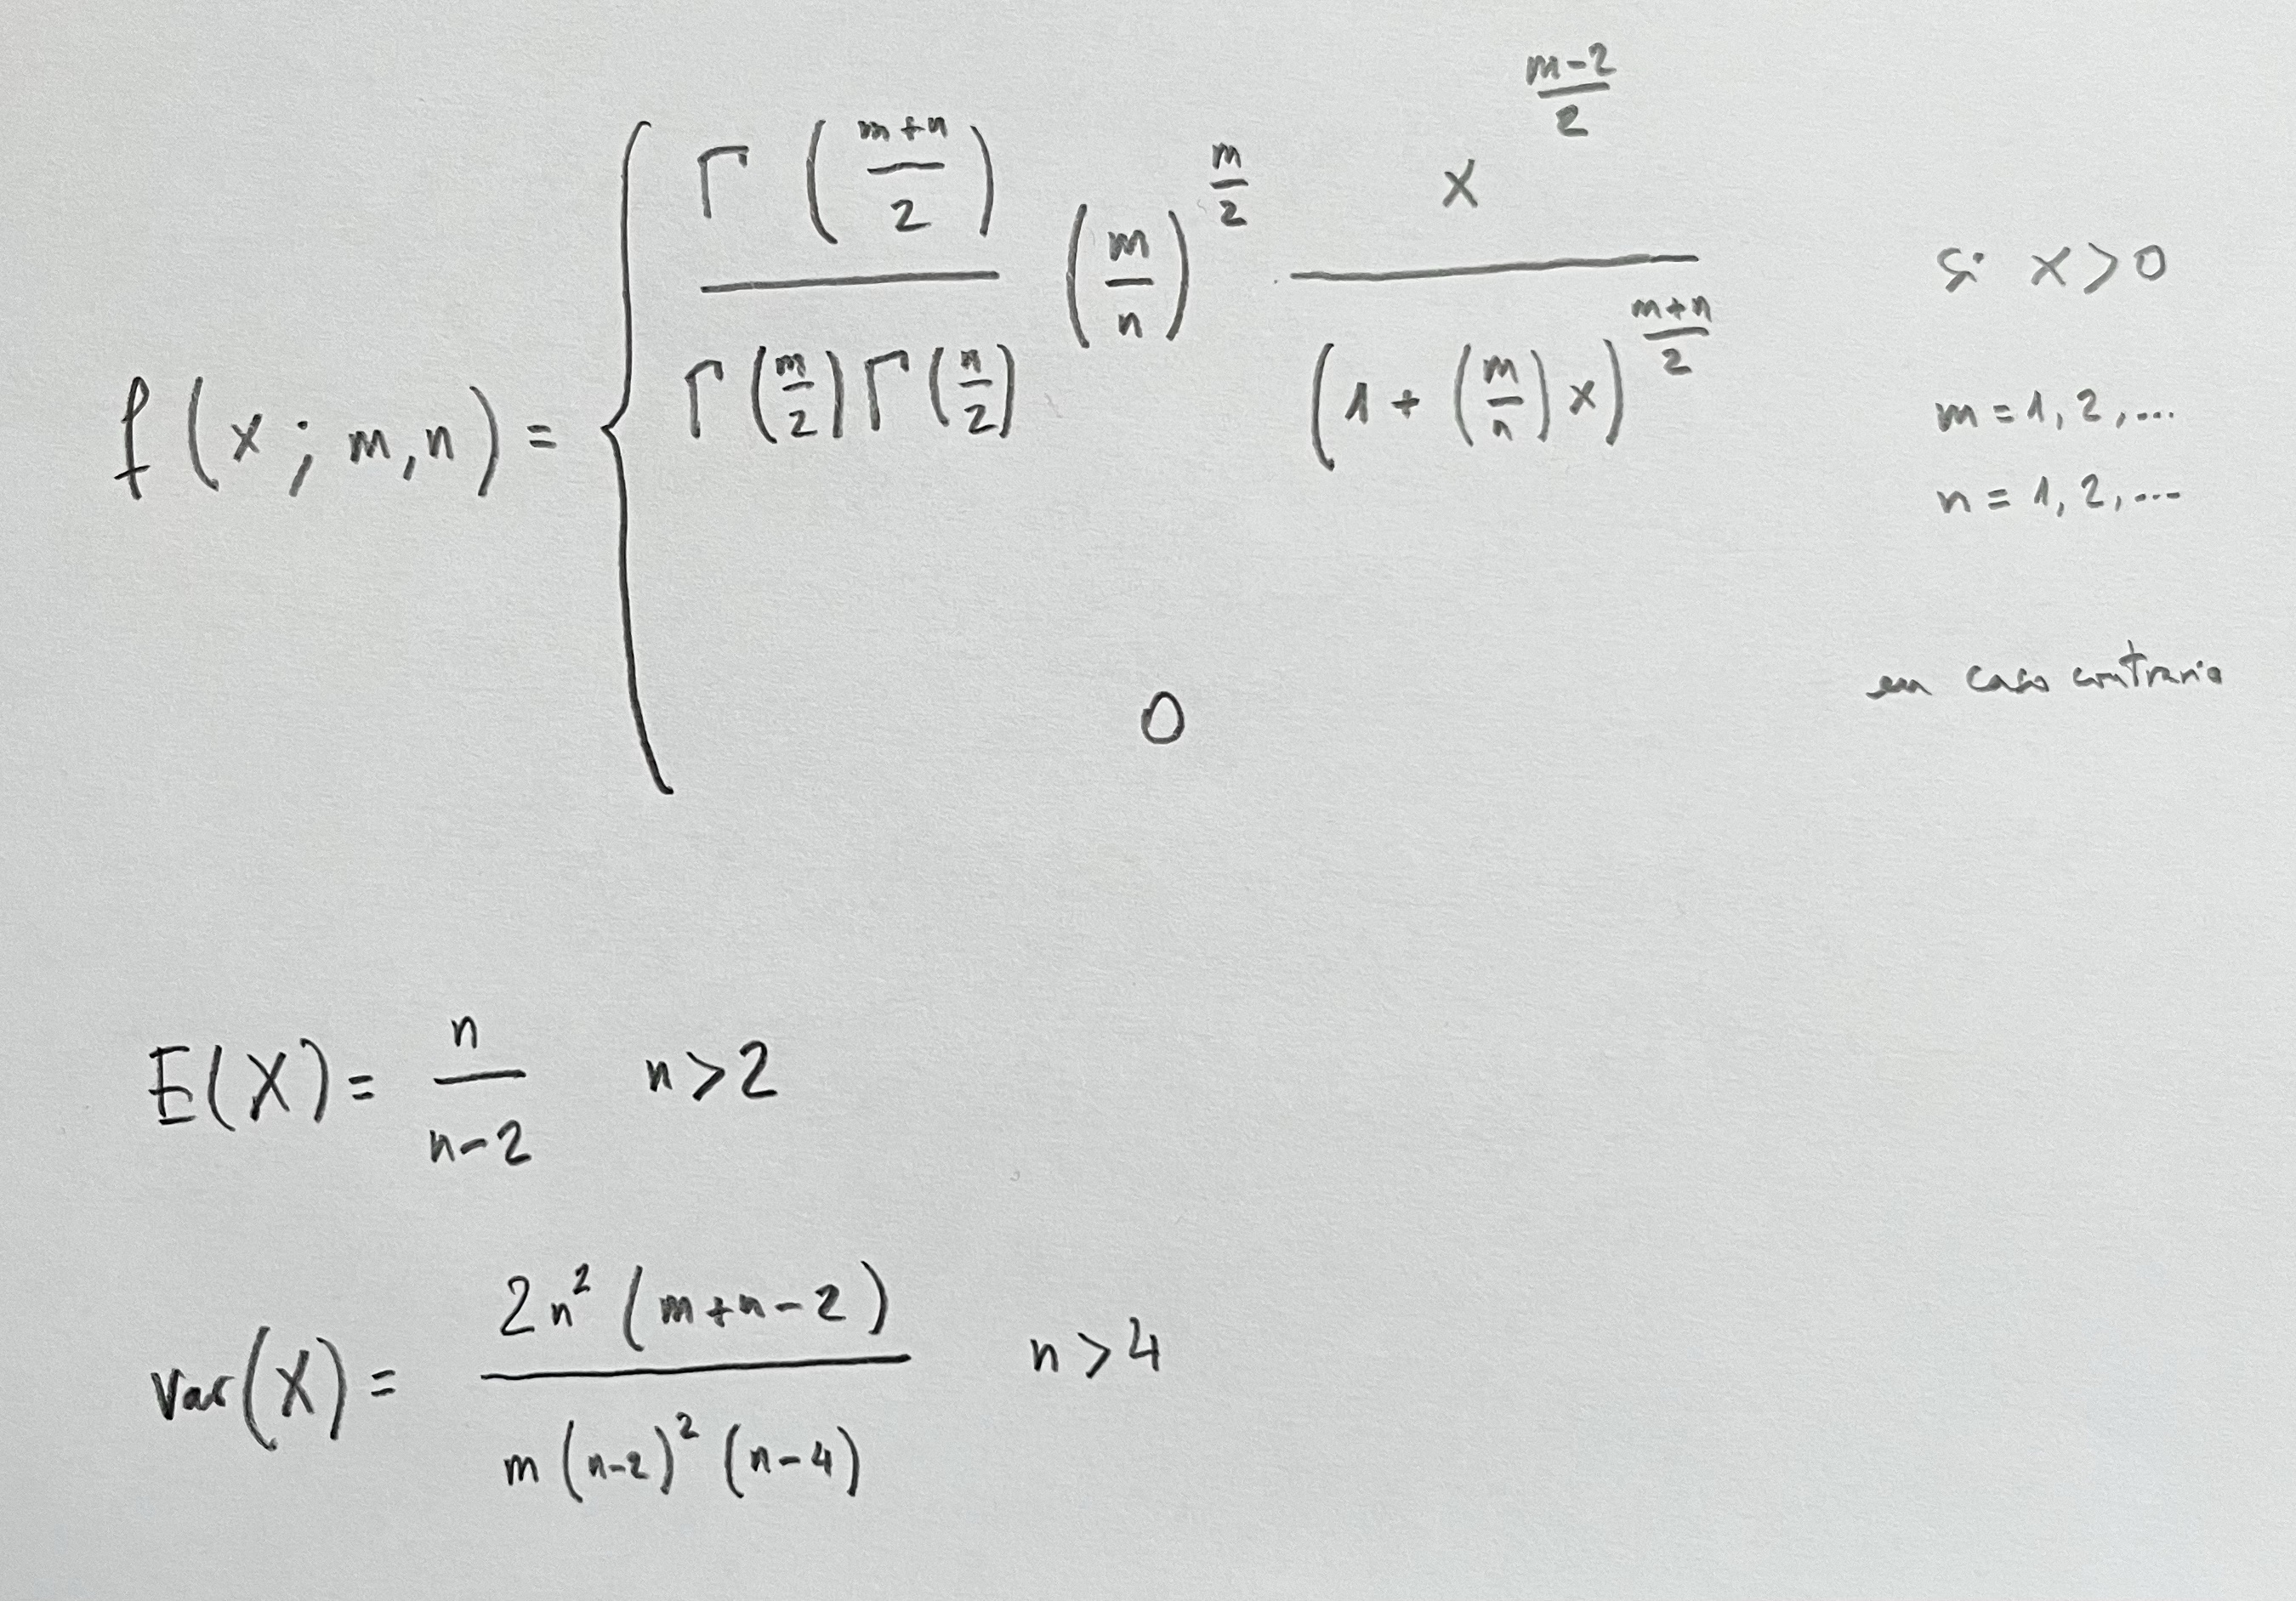 f(x; m,n) = { Γ((m+n)/2) / (Γ(m/2) Γ(n/2)) (m/n)^(m/2) x^((m-2)/2) / (1 + (m/n) x)^((m+n)/2) si x>0
m = 1, 2, ...
n = 1, 2, ...
0 en caso contrario
E(X) = n/(n-2) n>2
var(X) = 2n² (m+n-2) / (m (n-2)² (n-4)) n>4